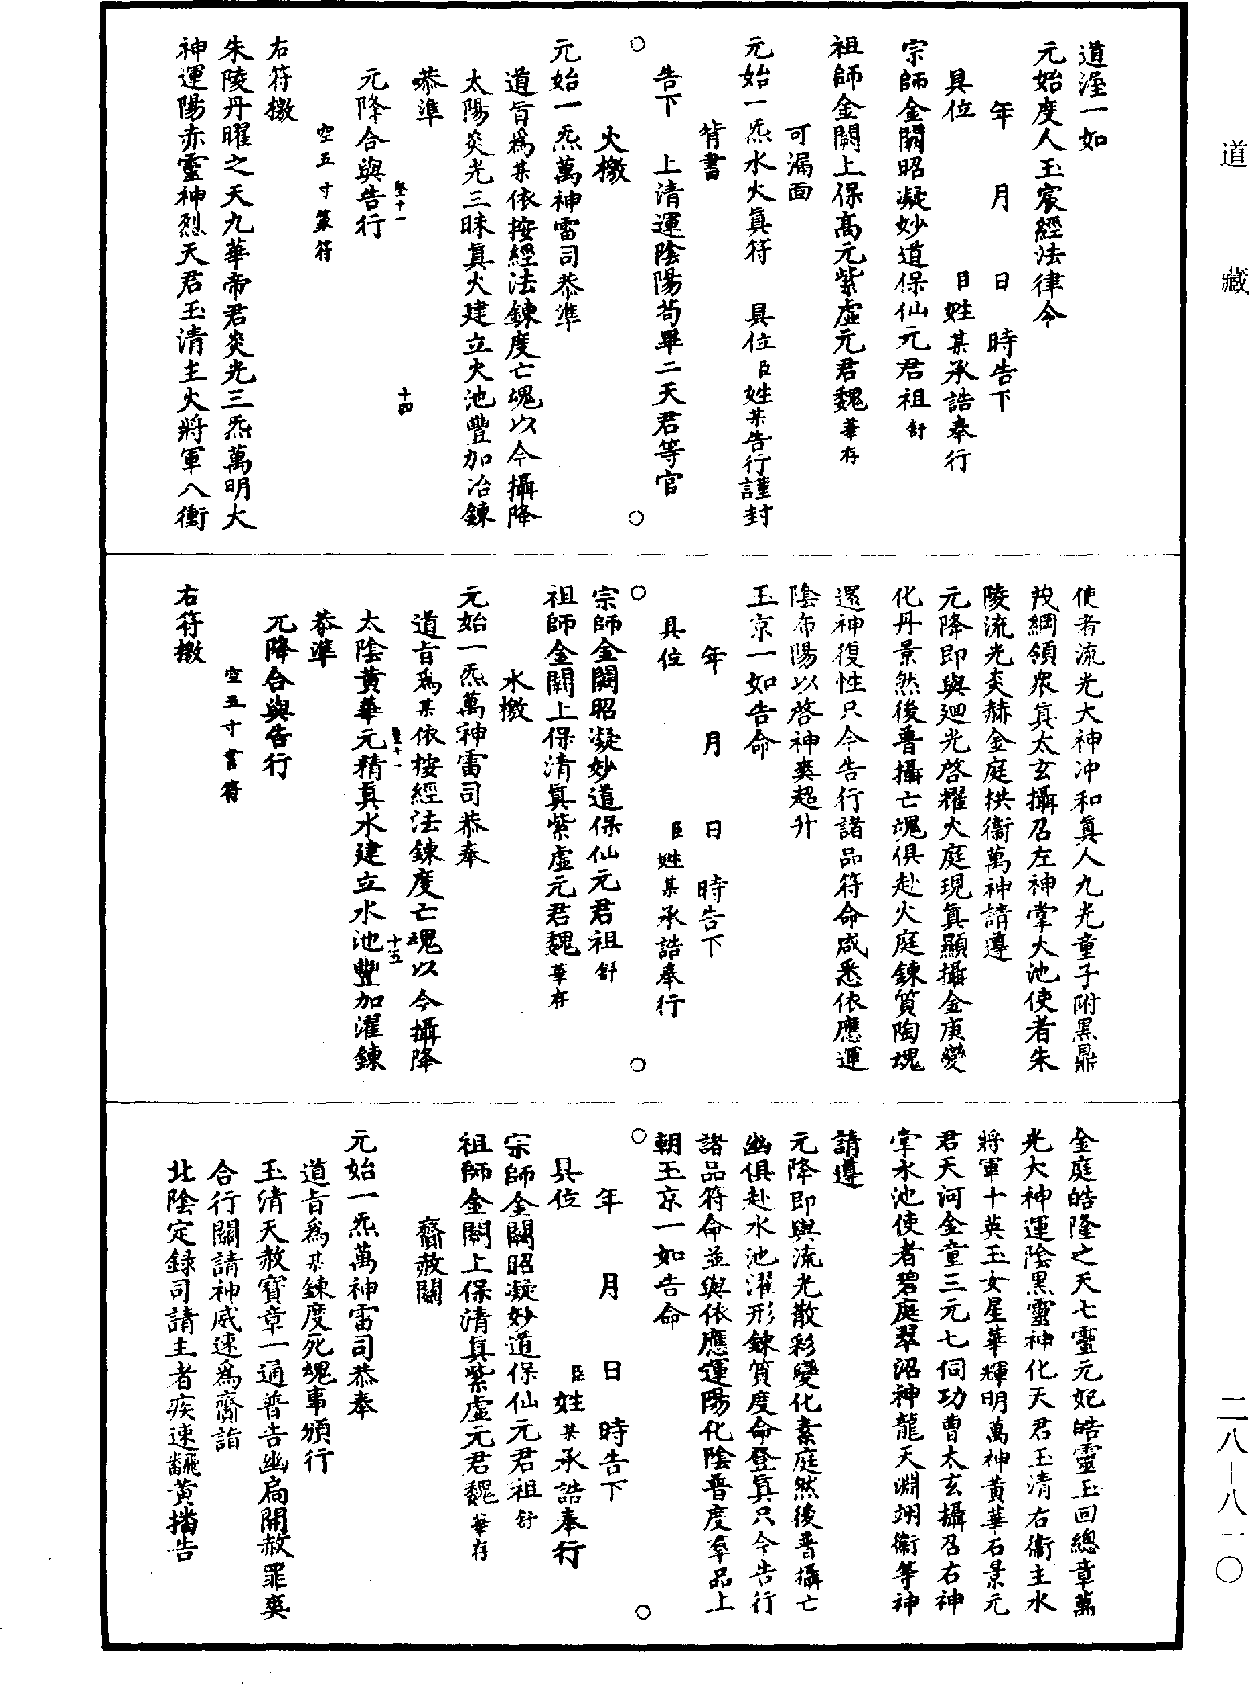 道藏
道淫一如
元始度人玉宸經法律令
年　月　日　時告下
具位　臣姓某承誥奉行
宗師金闕昭凝妙道保仙元君祖舒
祖師金闕上保高元紫虛元君魏華存
可漏面
元始一炁水火真符　具位臣姓某告行謹封
背書
告下　上清運陰陽苟畢二天君等官
火檄
元始一炁萬神雷司恭準
道旨為某依按經法鍊度亡魂以今攝降
太陽炎光三昧真火建立火池豐加冶鍊
恭準
元降合與告行
空五寸篆符
右符檄
朱陵丹曜之天九華帝君炎光三炁萬明大
神運陽赤靈神烈天君玉清主火將軍八衝
使者流光大神冲和真人九光童子附黑鼎
綱領眾真太玄攝召左神掌火池使者朱
陵流光炎赫金庭拱衛萬神請遵
元降即與廻光啓耀火庭現真顯攝金庚變
化丹景然後普攝亡魂俱赴火庭鍊質陶魂
還神復性只今告行諸品符命咸悉依應運
陰布陽以啓神爽超升
玉京一如告命
年　月　日　時告下
具位　臣姓某承誥奉行
宗師金闕昭凝妙道保仙元君祖舒
祖師金闕上保清真紫虛元君魏華存
水檄
元始一炁萬神雷司恭奉
道旨為某依按經法鍊度亡魂以今攝降
太陰黃華元精真水建立水池豐加濯鍊
十五
恭準
元降合與告行
空五寸書符
右符檄
金庭皓隆之天七靈元妃皓靈玉回總章萬
光大神運陰黑靈神化天君玉清右衛主水
將軍十英玉女星華輝明萬神黃華石景元
君天河金童三元七伺功曹太玄攝召右神
掌水池使者碧庭翠沼神龍天淵翊衛等神
請遵
元降即與流光散彩變化素庭然後普攝亡
幽俱赴水池濯形鍊質度命登真只今告行
諸品符命並與依應運陽化陰普度羣品上
朝玉京一如告命
年　月　日　時告下
具位　臣姓某承誥奉行
宗師金闕昭凝妙道保仙元君祖舒
祖師金闕上保清真紫虛元君魏華存
齎赦關
元始一炁萬神雷司恭奉
道旨為某鍊度死魂事頒行
玉清天赦寶章一通普告幽扃開赦罪爽
合行關請神威速為齎詣
北陰定錄司請主者疾速翻黃播告
二八－八一〇